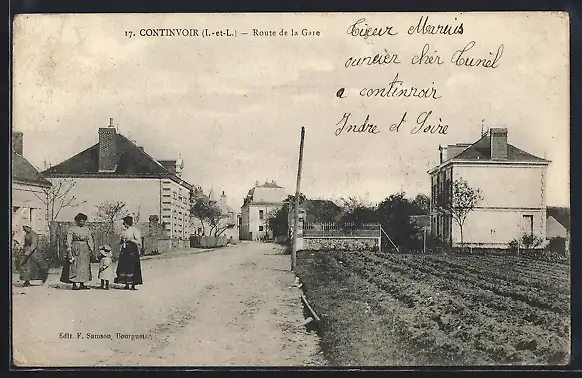 17. CONTINVOIR (I.-et-L.) — Route de la Gare
Cieux Marius
ouvrier cher Cuniel
a continvoir
Indre et Loire
Edit. F. Samson, Bourgueil